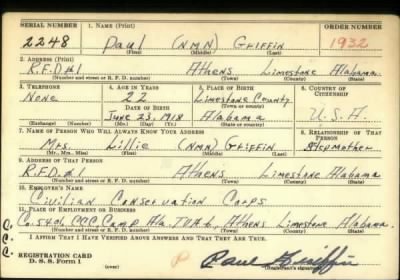 SERIAL NUMBER 1. NAME (Print) ORDER NUMBER
2248 Paul (NMN) Griffin 1932
2. ADDRESS (Print)
R.F.D #1 Athens Limestone Alabama
(Number and street or R. F. D. number) (Town) (County) (State)
3. TELEPHONE 4. AGE IN YEARS 5. PLACE OF BIRTH 6. COUNTRY OF CITIZENSHIP
None 22 Limestone County
DATE OF BIRTH (Town or county)
June 23, 1918 Alabama U.S.A.
(Exchange) (Number) (Mo.) (Day) (Yr.) (State or country)
7. NAME OF PERSON WHO WILL ALWAYS KNOW YOUR ADDRESS 8. RELATIONSHIP OF THAT PERSON
Mrs. Lillie (NMN) Griffin Stepmother
(Mr., Mrs., Miss) (First) (Middle) (Last)
9. ADDRESS OF THAT PERSON
R.F.D. #1 Athens Limestone Alabama
(Number and street or R. F. D. number) (Town) (County) (State)
10. EMPLOYER'S NAME
Civilian Conservation Corps
11. PLACE OF EMPLOYMENT OR BUSINESS
Co. 5406 CCC Camp Ala. TVA 6, Athens Limestone Alabama.
(Number and street or R. F. D. number) (Town) (County) (State)
I AFFIRM THAT I HAVE VERIFIED ABOVE ANSWERS AND THAT THEY ARE TRUE.
REGISTRATION CARD
D. S. S. Form 1 (over) P Paul Griffin
(Registrant's signature)